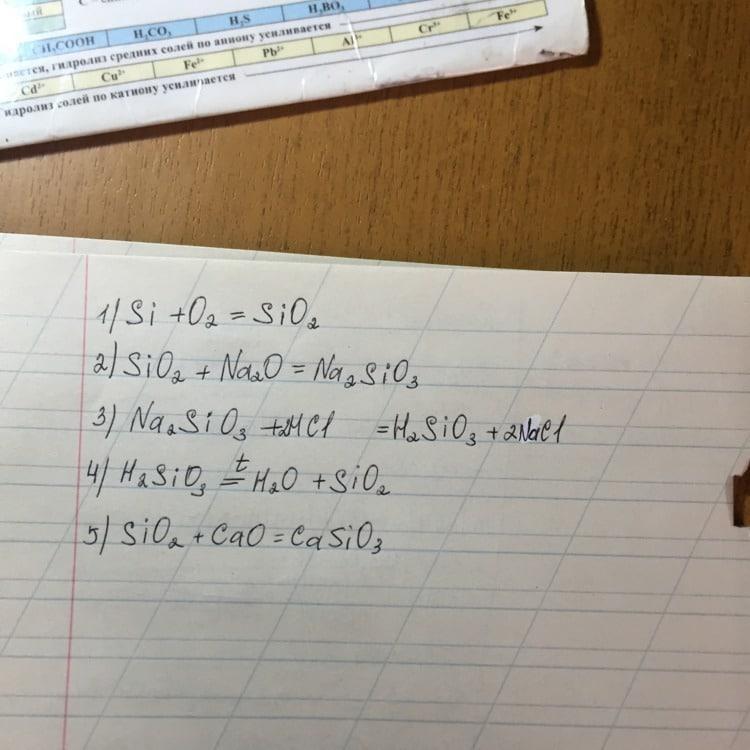 CH₃COOH H₂CO₃ H₂S H₂BO₃
гидролиз средних солей по аниону усиливается
Cd²⁺ Cu²⁺ Fe²⁺ Pb²⁺ Al³⁺ Cr³⁺ Fe³⁺
идролиз солей по катиону усиливается
1) Si + O₂ = SiO₂
2) SiO₂ + Na₂O = Na₂SiO₃
3) Na₂SiO₃ + 2HCl = H₂SiO₃ + 2NaCl
4) H₂SiO₃ =ᵗ H₂O + SiO₂
5) SiO₂ + CaO = CaSiO₃